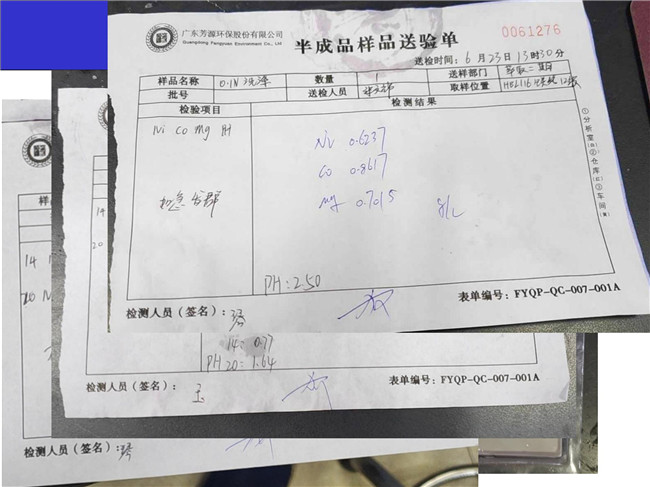 广东芳源环保股份有限公司
Guangdong Fangyuan Environment Co., Ltd
半成品样品送验单
0061276
送检时间：6月23日13时30分
样品名称 0.1N洗涤 数量 1 送样部门 萃取二期
批号 送检人员 取样位置
检验项目 检测结果
Ni Co Mg PH
Ni 0.6237
Co 0.8617
Mg 0.7015 g/L
加急 发群
PH：2.50
①分析室(白)②仓库(红)③车间(黄)
检测人员（签名）：
表单编号：FYQP-QC-007-001A
14
20
14：0.77
PH 20：1.64
检测人员（签名）：玉
表单编号：FYQP-QC-007-001A
样
14
20 N
检测人员（签名）：